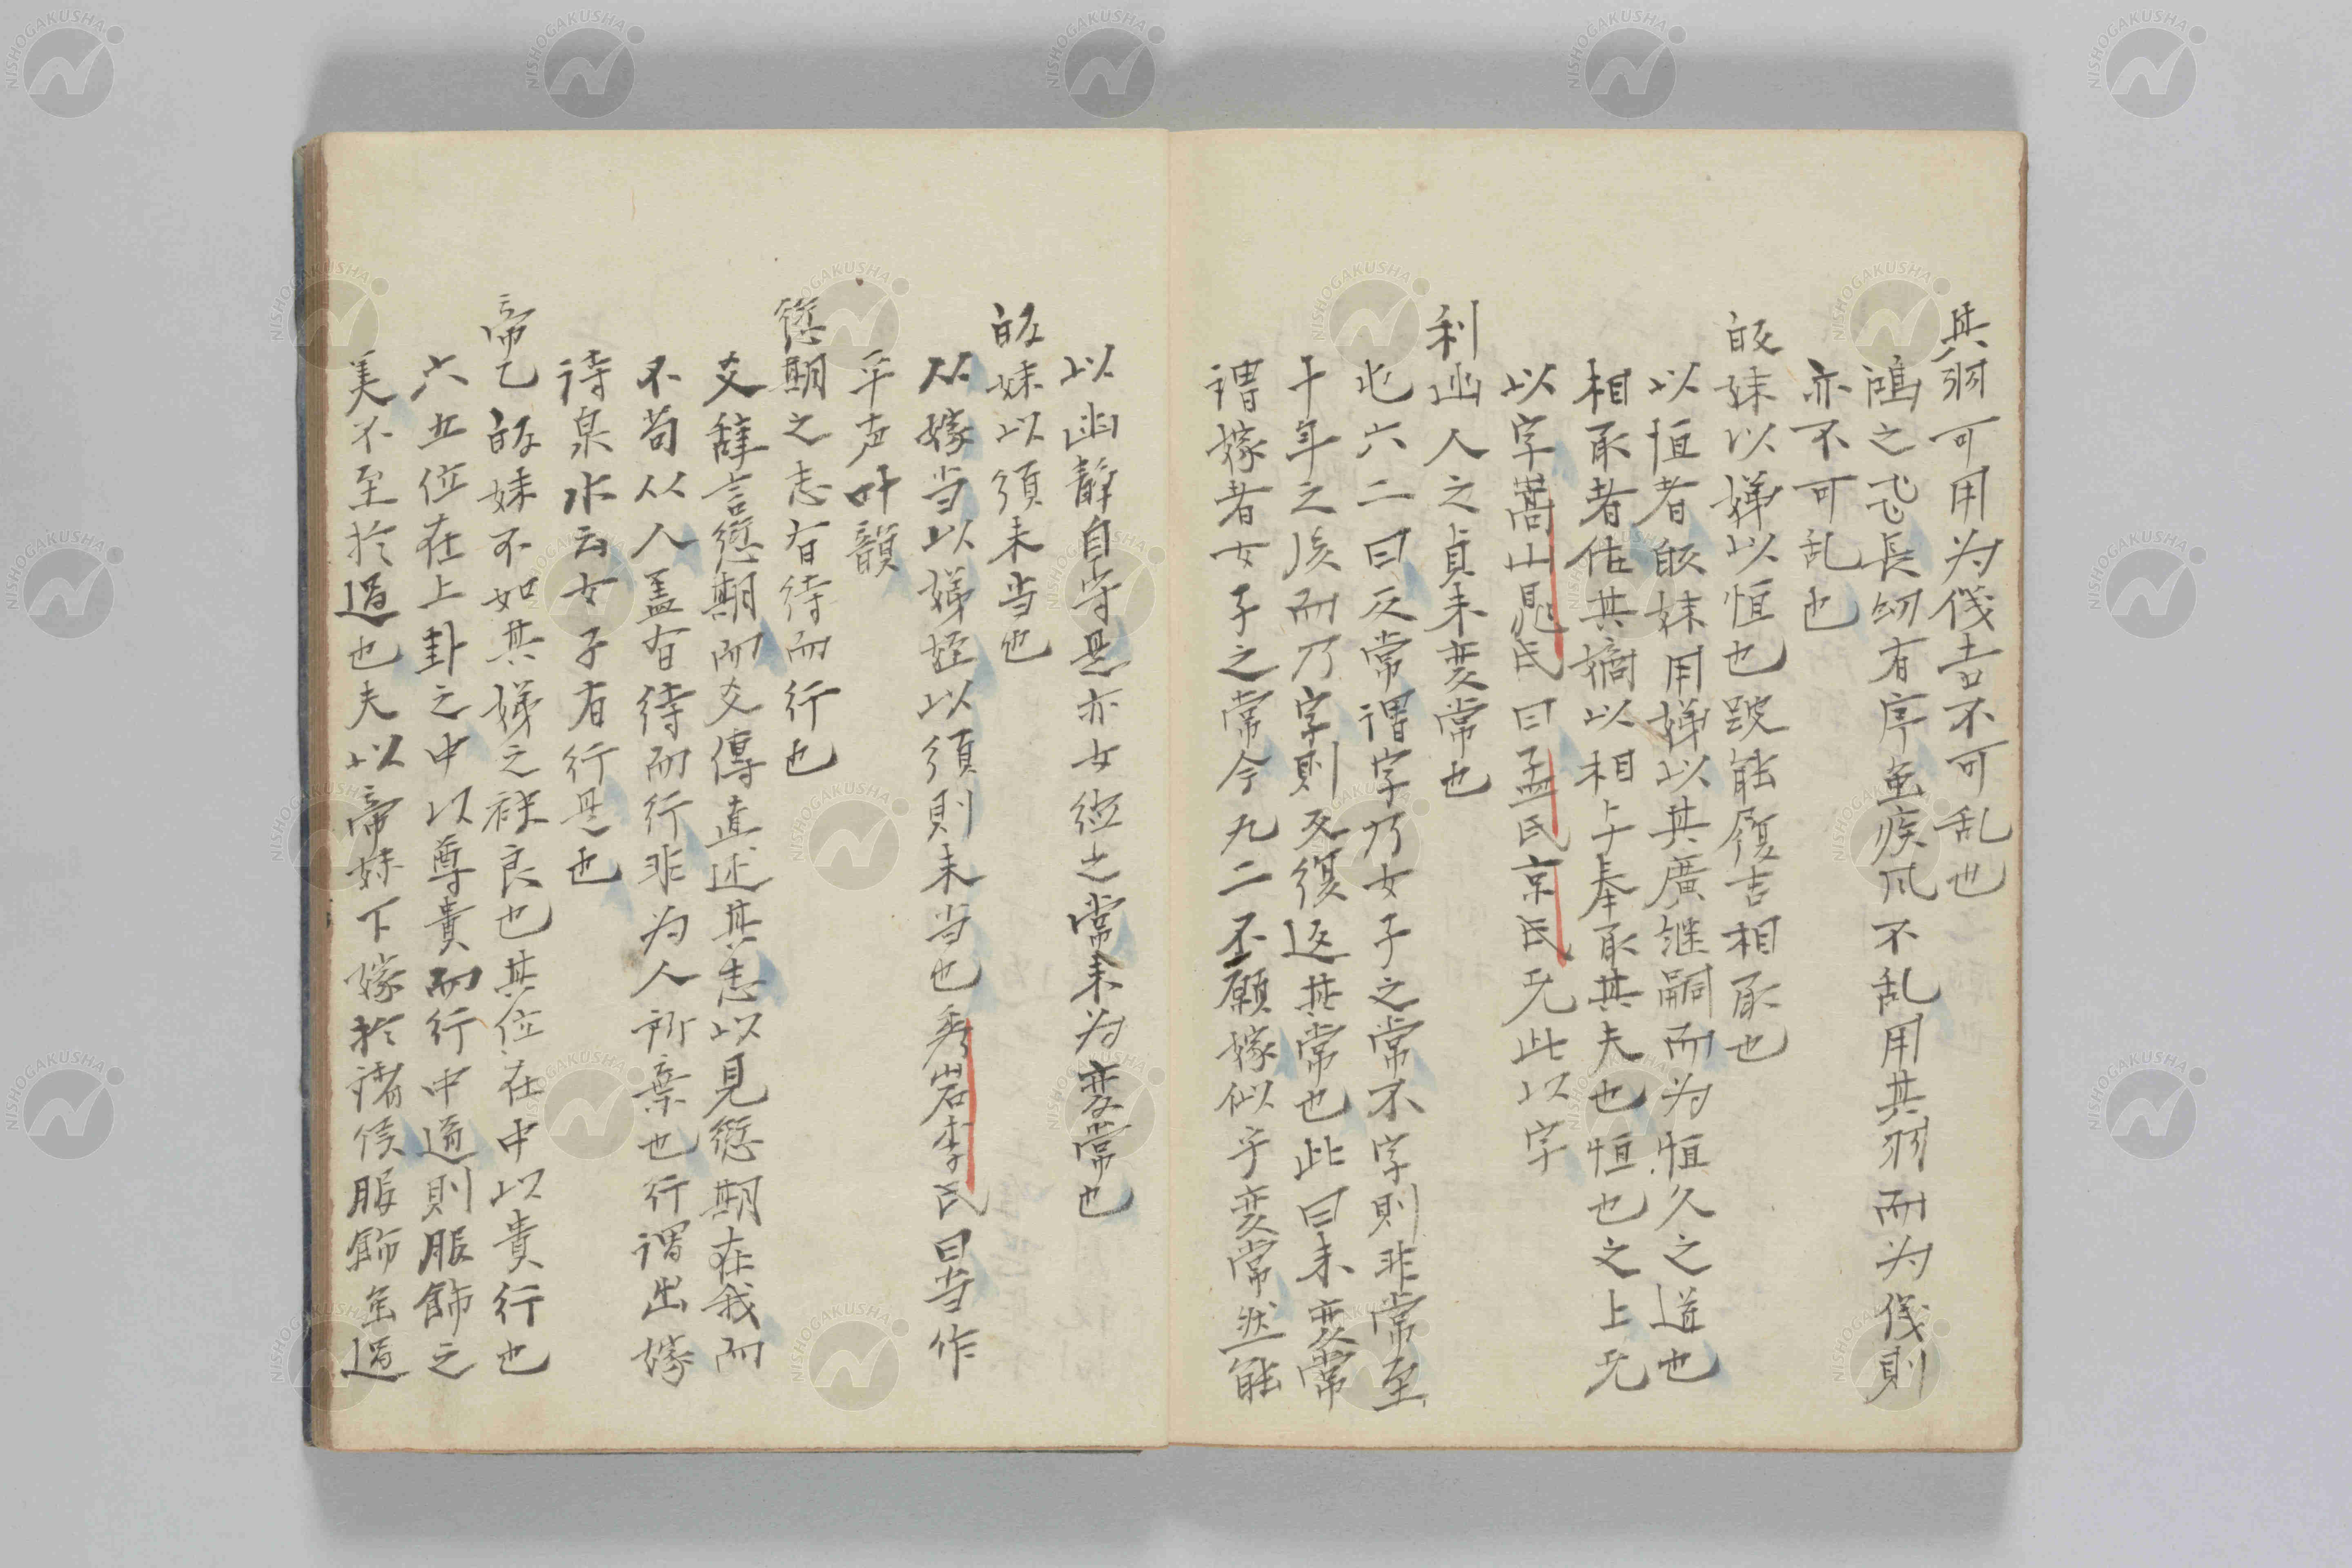 其羽可用为仪吉不可乱也
鴻之飞長幼有序虽疾风不乱用其羽而为仪則
亦不可乱也
皈妹以娣以恒也跛能履吉相承也
以恒者皈妹用娣以其廣継嗣而为恒久之道也
相承者佐其嫡以相与奉承其夫也恒也之上无
以字嵩山晁氏曰孟氏京氏无此以字
利幽人之貞未变常也
屯六二曰反常謂字乃女子之常不字則非常至
十年之後而乃字則反復返其常也此曰未变常
謂嫁者女子之常今九二不願嫁似乎变常然能
以幽靜自守是亦女徳之常未为变常也
皈妹以須未当也
从嫁当以娣姪以須則未当也秀岩李氏曰当作
平声叶韻
愆期之志有待而行也
爻辞言愆期而爻傳直述其志以見愆期在我而
不苟从人盖有待而行非为人所棄也行謂出嫁
诗泉水云女子有行是也
帝乙皈妹不如其娣之袂良也其位在中以貴行也
六五位在上卦之中以尊貴而行中道則服飾之
美不至於過也夫以帝妹下嫁於諸侯服飾至過
NISHOGAKUSHA